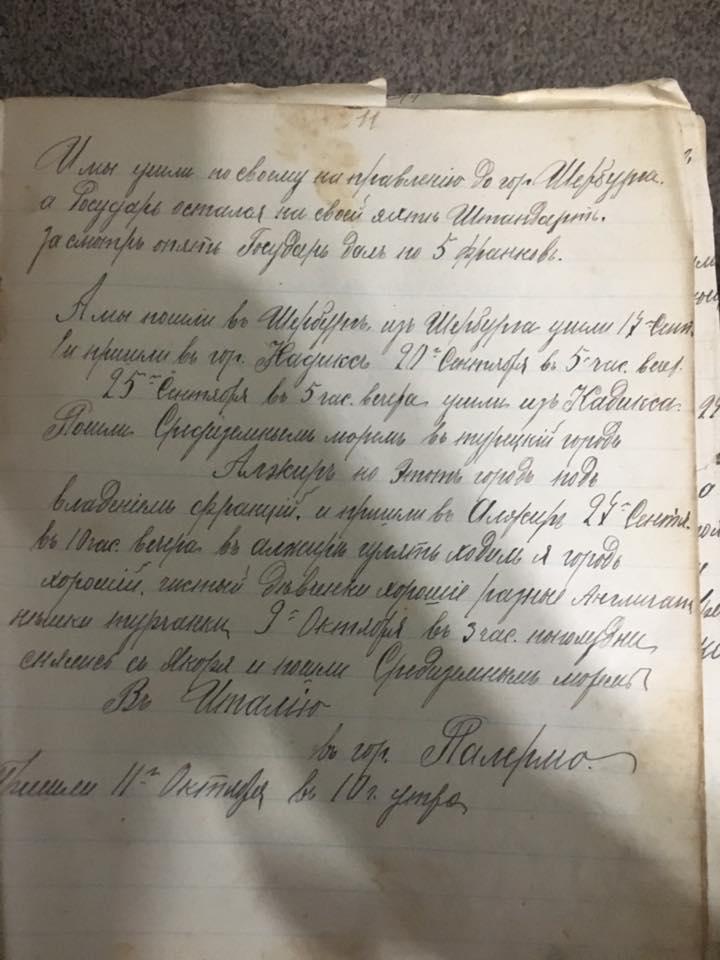 11
И мы ушли по своему направленію до гор. Шербурга.
а Государь остался на своей яхтѣ Штандартъ.
за смотръ опять Государь далъ по 5 франковъ.
А мы пошли въ Шербургъ, изъ Шербурга ушли 17го Сент
и пришли въ гор. Кадиксъ 20го Сентября въ 5 час. вечер.
25го Сентября въ 5 час. вечера ушли изъ Кадикса.
Пошли Средиземнымъ моремъ въ турецкій городъ
Алжиръ но этотъ городъ подъ
владеніемъ францій. и пришли въ Алжир 27го Сентя.
въ 10 час. вечера въ алжирѣ гулять ходил я городъ
хорошій. чистый дѣвченки хорошіе разные Англичан
ки турчанки 9го Октября въ 3 час. пополудни
снялись съ Якоря и пошли Средиземнымъ моремъ
Въ Италію
въ гор. Палермо.
Пришли 11го Октября въ 10 г. утра